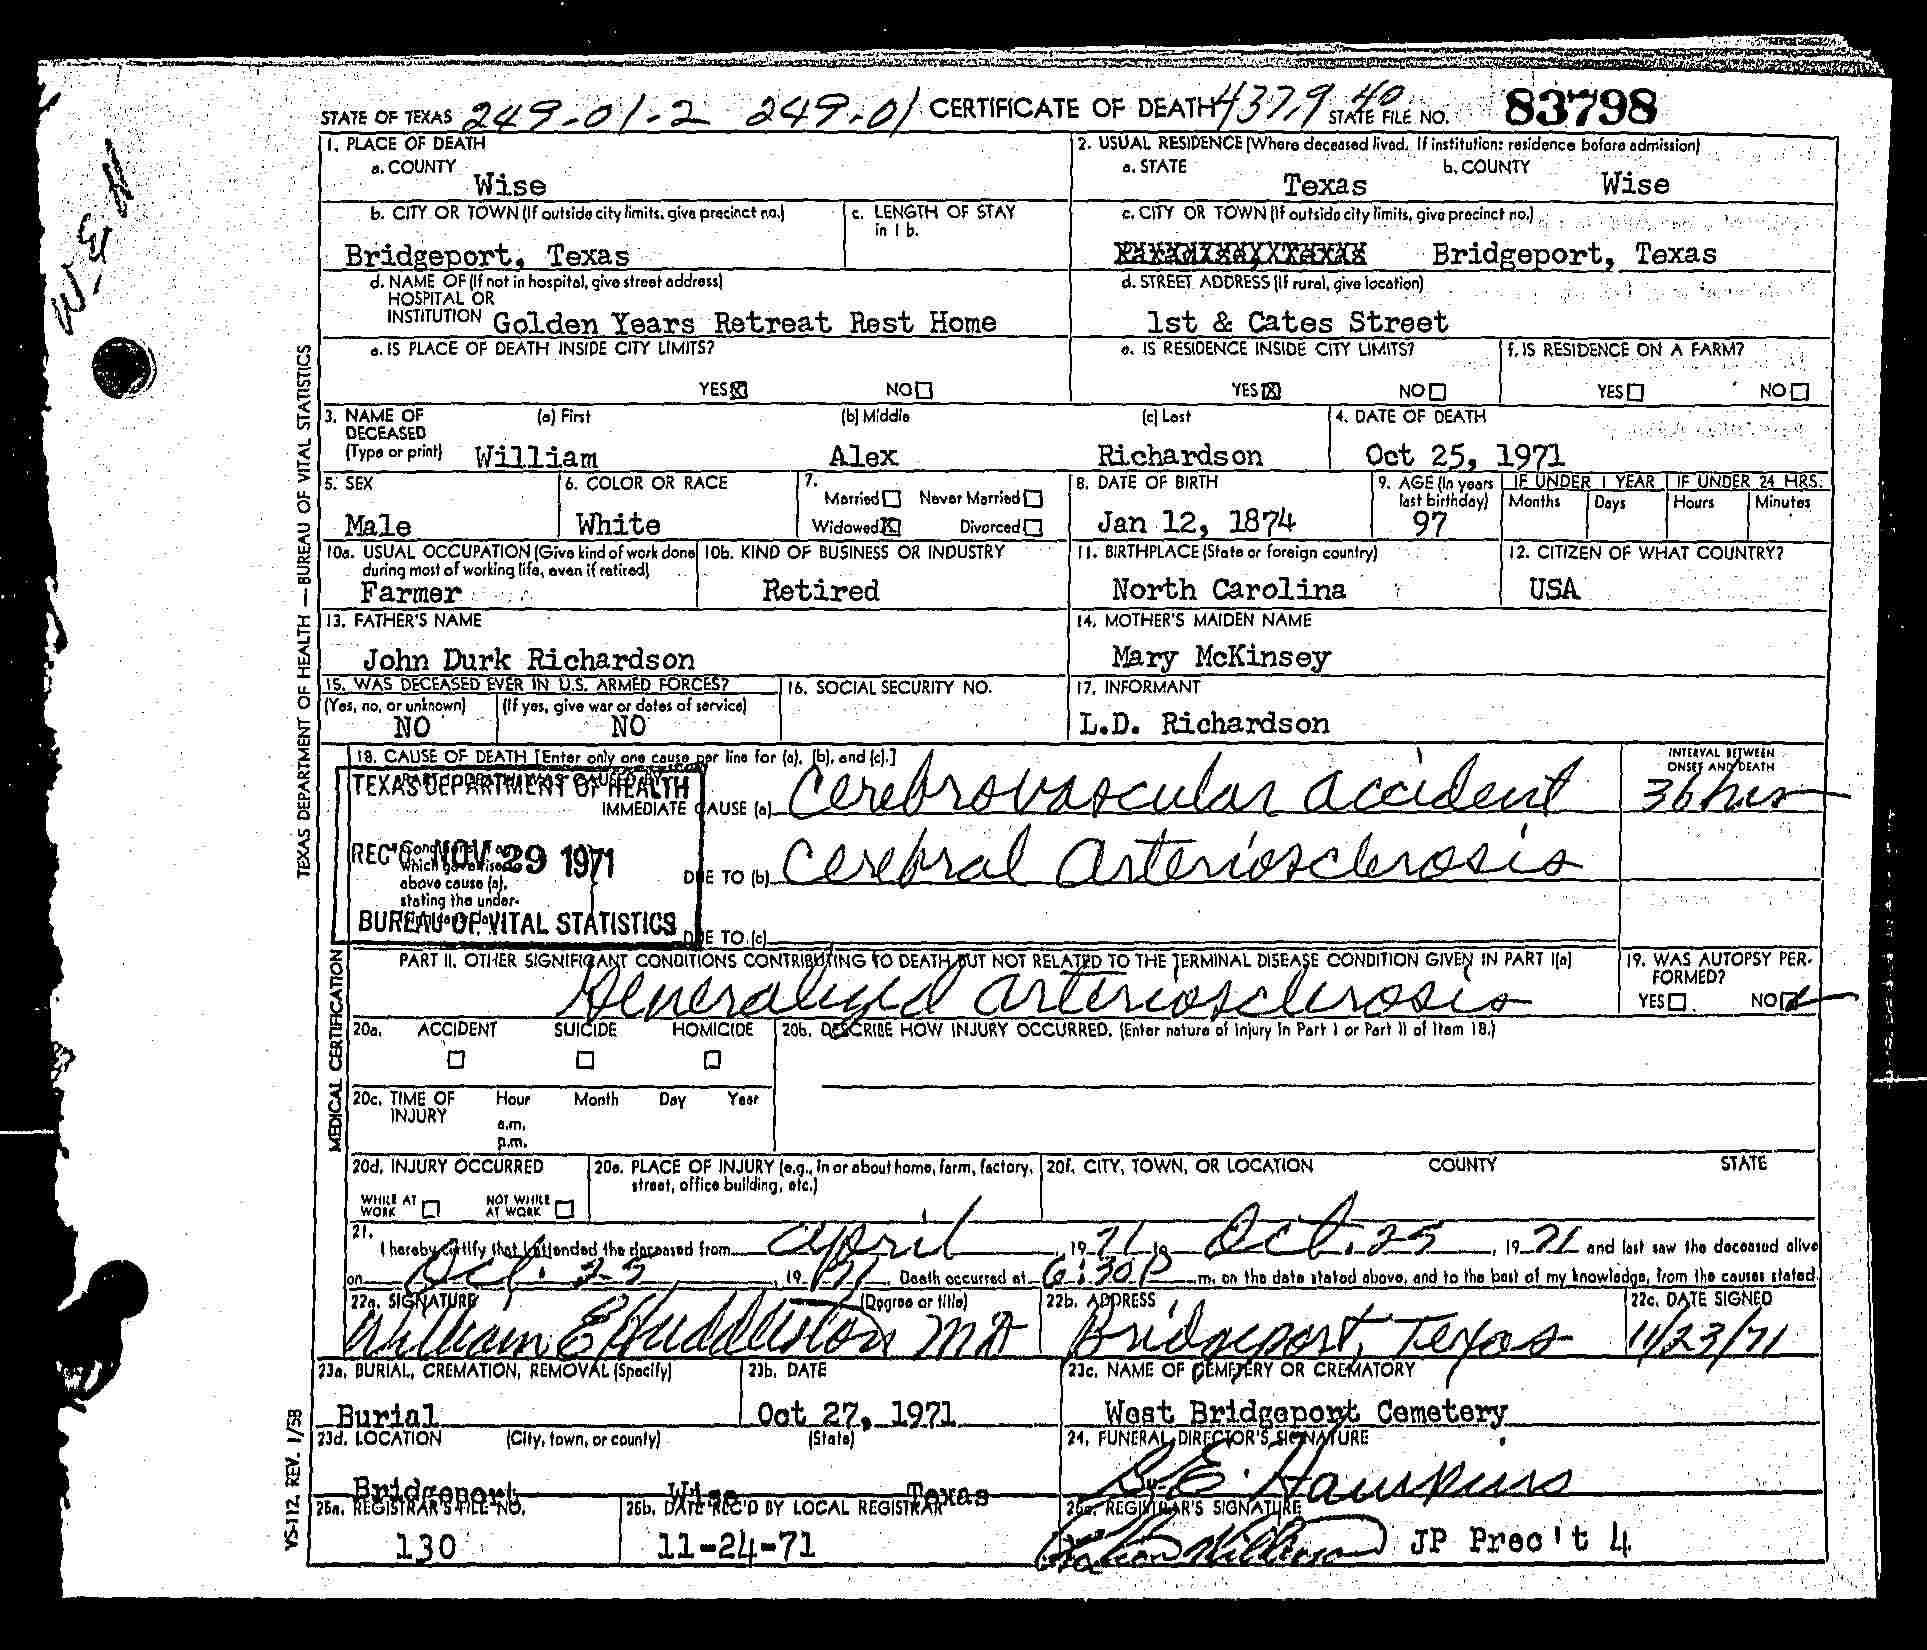 STATE OF TEXAS 249-01-2 249-01 CERTIFICATE OF DEATH 4379 40 STATE FILE NO. 83798
W E H
1. PLACE OF DEATH
a. COUNTY
Wise
2. USUAL RESIDENCE (Where deceased lived. If institution: residence before admission)
a. STATE b. COUNTY
Texas Wise
b. CITY OR TOWN (If outside city limits, give precinct no.)
Bridgeport, Texas
c. LENGTH OF STAY
in 1 b.
c. CITY OR TOWN (If outside city limits, give precinct no.)
Bridgeport, Texas
d. NAME OF (If not in hospital, give street address)
HOSPITAL OR
INSTITUTION Golden Years Retreat Rest Home
d. STREET ADDRESS (If rural, give location)
1st & Cates Street
e. IS PLACE OF DEATH INSIDE CITY LIMITS?
YES NO
e. IS RESIDENCE INSIDE CITY LIMITS?
YES NO
f. IS RESIDENCE ON A FARM?
YES NO
3. NAME OF
DECEASED
(Type or print)
(a) First (b) Middle (c) Last
William Alex Richardson
4. DATE OF DEATH
Oct 25, 1971
5. SEX
Male
6. COLOR OR RACE
White
7.
Married Never Married
Widowed Divorced
8. DATE OF BIRTH
Jan 12, 1874
9. AGE (In years
last birthday)
97
IF UNDER 1 YEAR
Months Days
IF UNDER 24 HRS.
Hours Minutes
10a. USUAL OCCUPATION (Give kind of work done
during most of working life, even if retired)
Farmer
10b. KIND OF BUSINESS OR INDUSTRY
Retired
11. BIRTHPLACE (State or foreign country)
North Carolina
12. CITIZEN OF WHAT COUNTRY?
USA
13. FATHER'S NAME
John Durk Richardson
14. MOTHER'S MAIDEN NAME
Mary McKinsey
15. WAS DECEASED EVER IN U.S. ARMED FORCES?
(Yes, no, or unknown) (If yes, give war or dates of service)
NO NO
16. SOCIAL SECURITY NO.
17. INFORMANT
L.D. Richardson
TEXAS DEPARTMENT OF HEALTH — BUREAU OF VITAL STATISTICS
MEDICAL CERTIFICATION
18. CAUSE OF DEATH [Enter only one cause per line for (a), (b), and (c).]
INTERVAL BETWEEN
ONSET AND DEATH
TEXAS DEPARTMENT OF HEALTH
IMMEDIATE CAUSE (a) Cerebrovascular accident 36 hrs
REC'D NOV 29 1971
which gave rise to
above cause (a),
stating the under-
DUE TO (b) Cerebral arteriosclerosis
BUREAU OF VITAL STATISTICS
DUE TO (c)
PART II. OTHER SIGNIFICANT CONDITIONS CONTRIBUTING TO DEATH BUT NOT RELATED TO THE TERMINAL DISEASE CONDITION GIVEN IN PART I(a)
Generalized arteriosclerosis
19. WAS AUTOPSY PER-
FORMED?
YES NO
20a. ACCIDENT SUICIDE HOMICIDE
20b. DESCRIBE HOW INJURY OCCURRED. (Enter nature of injury in Part I or Part II of Item 18.)
20c. TIME OF
INJURY
Hour Month Day Year
a.m.
p.m.
20d. INJURY OCCURRED
WHILE AT
WORK
NOT WHILE
AT WORK
20e. PLACE OF INJURY (e.g., in or about home, farm, factory,
street, office building, etc.)
20f. CITY, TOWN, OR LOCATION COUNTY STATE
21.
I hereby certify that I attended the deceased from April, 1971 to Oct. 25, 1971 and last saw the deceased alive
on Oct. 25, 1971. Death occurred at 6:30P m. on the date stated above, and to the best of my knowledge, from the causes stated.
22a. SIGNATURE (Degree or title)
William E Huddleston MD
22b. ADDRESS
Bridgeport, Texas
22c. DATE SIGNED
11/23/71
23a. BURIAL, CREMATION, REMOVAL (Specify)
Burial
23b. DATE
Oct 27, 1971
23c. NAME OF CEMETERY OR CREMATORY
West Bridgeport Cemetery
23d. LOCATION (City, town, or county) (State)
Bridgeport Wise Texas
24. FUNERAL DIRECTOR'S SIGNATURE
Hawkins
25a. REGISTRAR'S FILE NO.
130
25b. DATE REC'D BY LOCAL REGISTRAR
11-24-71
25c. REGISTRAR'S SIGNATURE
JP Prec't 4
VS-112. REV. 1/58